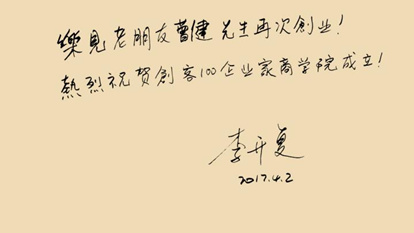 樂見老朋友曹健先生再次創业！
熱烈祝贺創客100企业家商学院成立！
李开复
2017.4.2